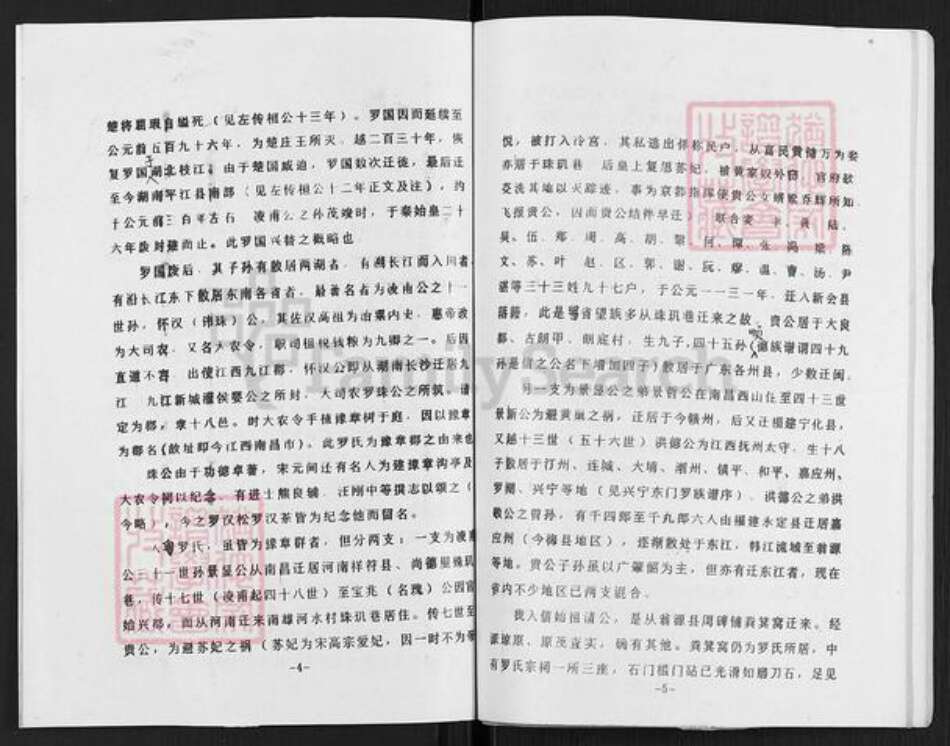 楚将屈瑕自缢死（见左传桓公十三年）。罗国因而延续至
公元前五百九十六年，为楚庄王所灭。越二百三十年，恢
复罗国湖北枝江，由于楚国威迫，罗国数次迁徙，最后迁
至今湖南平江县南部（见左传桓公十二年正文及注），约
于公元前三百年左右 凌甫公之孙茂竣时，于秦始皇二十
六年 而止。此罗国兴替之概略也
罗国 后，其子孙有散居两湖者，有溯长江而入川者
有沿长江东下散居东南各省者，最著名者为凌甫公之十一
世孙，怀汉（讳珠）公，其佐汉高祖为治粟内史，惠帝改
为大司农，又名大农令，职司租税钱粮为九卿之一。后因
直道不容 出使江西九江郡，怀汉公即从湖南长沙迁居九
江 九江新城灌侯婴公之所封，大司农罗珠公之所筑，请
定为郡，隶十八邑。时大农令手植豫章树于庭，因以豫章
为郡名（故址即今江西南昌市）。此罗氏为豫章郡之由来也
珠公由于功德卓著，宋元间迁有名人为建豫章沟亭及
大农令祠以纪念 有进士熊良辅、汪刚中等撰志以颂之（
今略），今之罗汉松罗汉茶皆为纪念他而留名。
罗氏，虽皆为豫章群者，但分两支；一支为凌甫
公三十一世孙景显公从南昌迁居河南祥符县、尚德里珠玑
巷，传十七世（凌甫起四十八世）至宝兆（名瑰）公因官
始兴郡，而从河南迁来南雄河水村珠玑巷居住。传七世至
贵公，为避苏妃之祸（苏妃为宋高宗爱妃，因一时不为帝
-4-
悦，被打入冷宫，其私逃出俳称民户，从富民黄储万为妾
亦居于珠玑巷 后皇上复思苏妃，被黄家奴外 官府欲
芟洗其地以灭踪迹，事为京 使贵公女婿 乔辉所知
飞报贵公，因而贵公结伴早迁 联合麦 陆
吴、伍 郑 周、高、胡 何 陈 张 冯 梁 陈
文、苏、叶 赵、区、郭、谢、阮、廖、温、曹、汤、尹
湛等三十三姓九十七户，于公元一一三一年，迁入新会县
落籍，此是粤省望族多从珠玑巷迁来之故，贵公居于大良
都、古朗甲、朗底村，生九子，四十五孙（ 族谱谓四十九
孙是贵之公名下增加四子）散居于广东各州县，少数迁闽，
另一支为景显公之弟景哲公在南昌西山住至四十三世
景新公为避黄巢之祸，迁居于今赣州，后又迁福建宁化县，
又越十三世（五十六世）洪德公为江西抚州太守，生十八
子散居于汀州、连城、大埔、潮州、镇平、和平、嘉应州、
罗冈、兴宁等地（见兴宁东门罗族谱序） 洪德公之弟洪
敬公之曾孙，有千四郎至千九郎六人由福建永定县迁居嘉
应州（今梅县地区），逐渐散处于东江，韩江流域至翁源
等地。贵公子孙虽以广肇韶为主，但亦有迁东江者，现在
省内不少地区已两支混合。
我入信始祖清公，是从翁源县周碑铺粪箕窝迁来。经
派 原、原茂查实，确有其他。粪箕窝仍为罗氏所居，中
有罗氏宗祠一所三座，石门槛门踮已光滑如磨刀石，足见
-5-